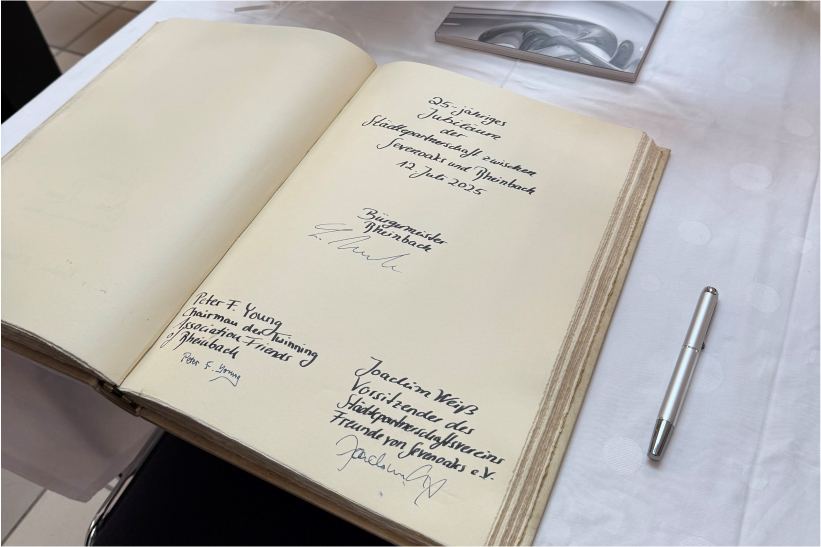 25-jähriges
Jubiläum
der
Städtepartnerschaft zwischen
Sevenoaks und Rheinbach
12. Juli 2025
Bürgermeister
Rheinbach
Peter F. Young
Chairman der Twinning
Association Friends
of Rheinbach
Peter F. Young
Joachim Weiß
Vorsitzender des
Städtepartnerschaftsvereins
Freunde von Sevenoaks e.V.